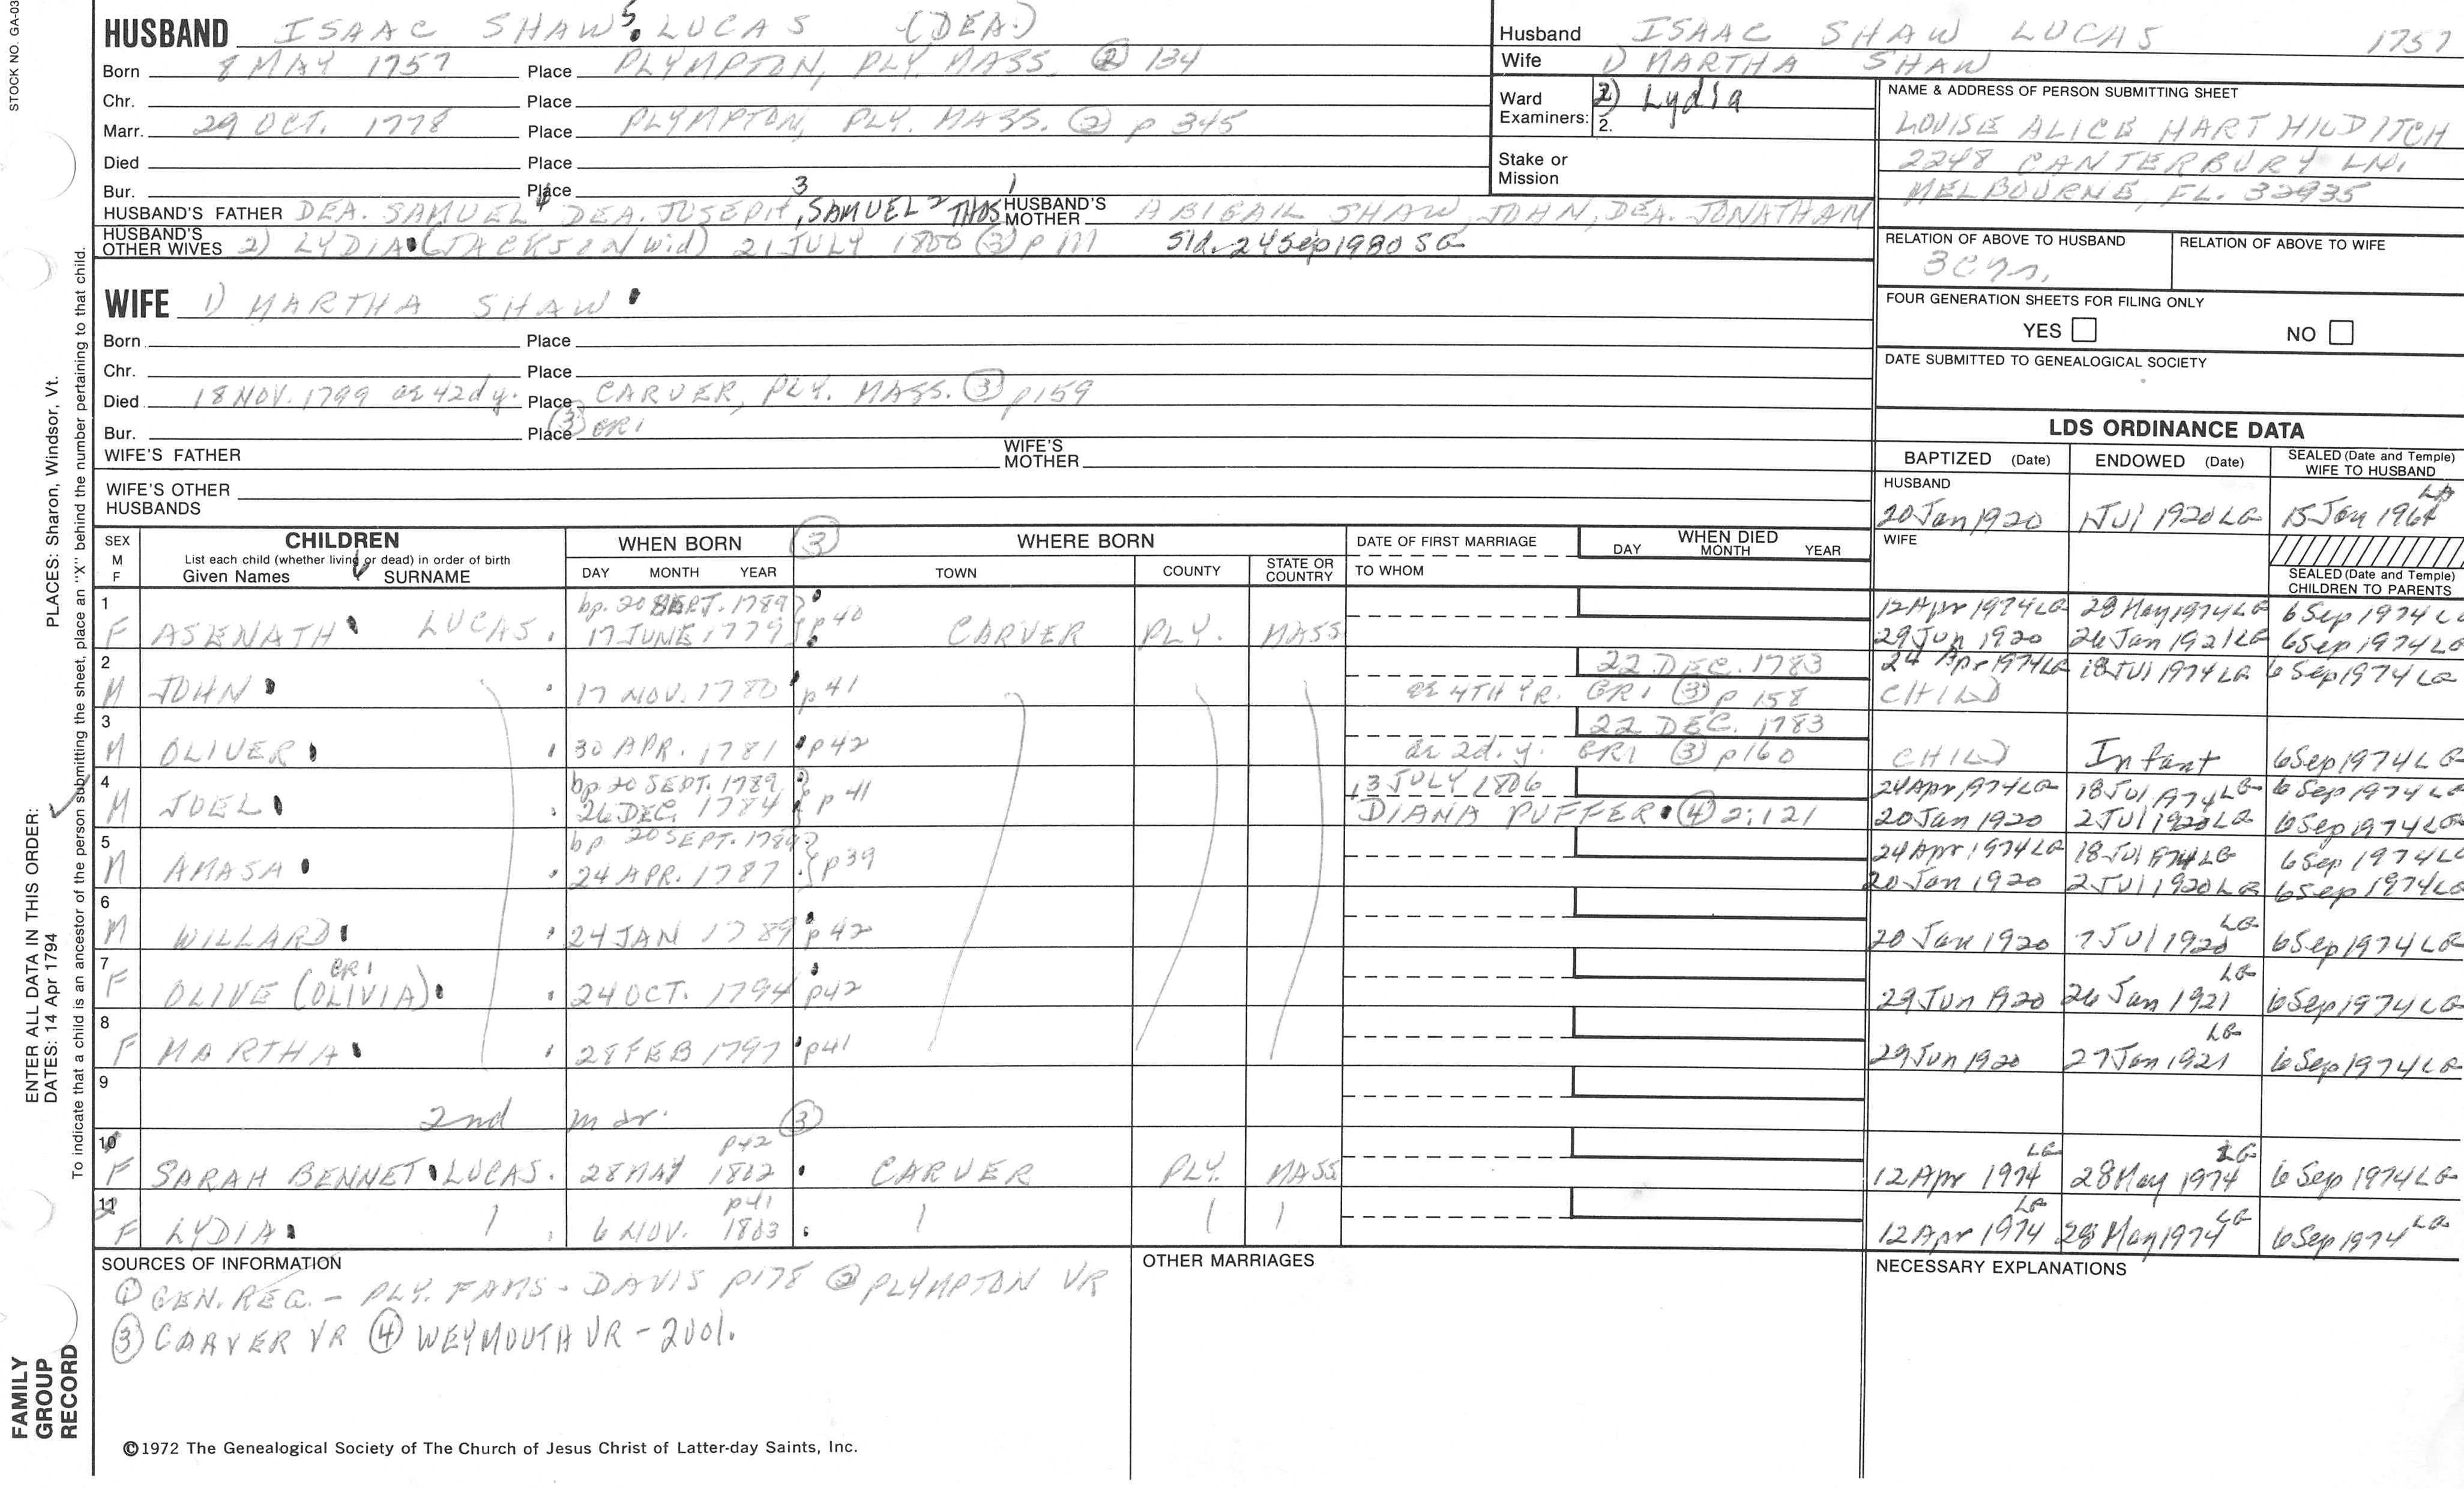 STOCK NO. GA-03
HUSBAND ISAAC SHAW 5 LUCAS (DEA.)
Born 8 MAY 1757 Place PLYMPTON, PLY. MASS. ② 134
Chr. Place
Marr. 29 OCT. 1778 Place PLYMPTON, PLY. MASS. ② p 345
Died Place
Bur. Place
HUSBAND'S FATHER DEA. SAMUEL 4 DEA. JOSEPH 3, SAMUEL 2 THOS 1 HUSBAND'S MOTHER ABIGAIL SHAW, JOHN, DEA. JONATHAN
HUSBAND'S OTHER WIVES 2) LYDIA (JACKSON wid) 21 JULY 1800 ③ p 111 Sld. 24 Sep 1980 SG
Husband ISAAC SHAW LUCAS 1757
Wife 1) MARTHA SHAW
Ward Examiners: 2) Lydia
2.
Stake or Mission
NAME & ADDRESS OF PERSON SUBMITTING SHEET
LOUISE ALICE HART HILDITCH
2248 CANTERBURY LN.
MELBOURNE, FL. 32935
RELATION OF ABOVE TO HUSBAND RELATION OF ABOVE TO WIFE
FOUR GENERATION SHEETS FOR FILING ONLY
YES NO
DATE SUBMITTED TO GENEALOGICAL SOCIETY
WIFE 1) MARTHA SHAW
Born Place
Chr. Place
Died 18 NOV. 1799 ae 42d y. Place CARVER, PLY. MASS. ③ p159
Bur. Place ③ GR1
WIFE'S FATHER WIFE'S MOTHER
WIFE'S OTHER HUSBANDS
LDS ORDINANCE DATA
BAPTIZED (Date) ENDOWED (Date) SEALED (Date and Temple) WIFE TO HUSBAND
HUSBAND
20 Jan 1920 1 Jul 1920 LG 15 Jan 1964 LA
WIFE
SEALED (Date and Temple) CHILDREN TO PARENTS
SEX M F CHILDREN WHEN BORN ③ WHERE BORN DATE OF FIRST MARRIAGE WHEN DIED
List each child (whether living or dead) in order of birth
Given Names SURNAME DAY MONTH YEAR TOWN COUNTY STATE OR COUNTRY TO WHOM DAY MONTH YEAR
1 bp. 20 SEPT. 1789 12 Apr 1974 LG 28 May 1974 LG 6 Sep 1974 LG
F ASENATH LUCAS. 17 JUNE 1779 p40 CARVER PLY. MASS 29 Jun 1920 26 Jan 1921 LG 6 Sep 1974 LG
2 22 DEC. 1783 24 Apr 1974 LG 18 Jul 1974 LG 6 Sep 1974 LG
M JOHN 17 NOV. 1780 p41 ae 4TH YR. GR1 ③ p 158 CHILD
3 22 DEC. 1783
M OLIVER 30 APR. 1781 p42 ae 2d. y. GR1 ③ p160 CHILD Infant 6 Sep 1974 LG
4 bp 20 SEPT. 1789 13 JULY 1806 24 Apr 1974 LG 18 Jul 1974 LG 6 Sep 1974 LG
M JOEL 26 DEC. 1784 p 41 DIANA PUFFER ④ 2:121 20 Jan 1920 2 Jul 1920 LG 6 Sep 1974 LG
5 bp 20 SEPT. 1789 24 Apr 1974 LG 18 Jul 1974 LG 6 Sep 1974 LG
M AMASA 24 APR. 1787 p39 20 Jan 1920 2 Jul 1920 LG 6 Sep 1974 LG
6
M WILLARD 24 JAN 1789 p42 20 Jan 1920 7 Jul 1920 LG 6 Sep 1974 LG
7 GR1
F OLIVE (OLIVIA) 24 OCT. 1794 p42 29 Jun 1920 26 Jan 1921 LG 6 Sep 1974 LG
8
F MARTHA 28 FEB 1797 p41 29 Jun 1920 27 Jan 1921 LG 6 Sep 1974 LG
9
2nd mar. ③
10 p42
F SARAH BENNET LUCAS. 28 MAY 1802 CARVER PLY. MASS 12 Apr 1974 LG 28 May 1974 LG 6 Sep 1974 LG
11 p41
F LYDIA 6 NOV. 1803 12 Apr 1974 LG 28 May 1974 LG 6 Sep 1974 LG
SOURCES OF INFORMATION
① GEN. REG. - PLY. FAMS - DAVIS p178 ② PLYMPTON VR
③ CARVER VR ④ WEYMOUTH VR - 2 vol.
OTHER MARRIAGES
NECESSARY EXPLANATIONS
©1972 The Genealogical Society of The Church of Jesus Christ of Latter-day Saints, Inc.
FAMILY GROUP RECORD
ENTER ALL DATA IN THIS ORDER:
DATES: 14 Apr 1794
PLACES: Sharon, Windsor, Vt.
To indicate that a child is an ancestor of the person submitting the sheet, place an "X" behind the number pertaining to that child.